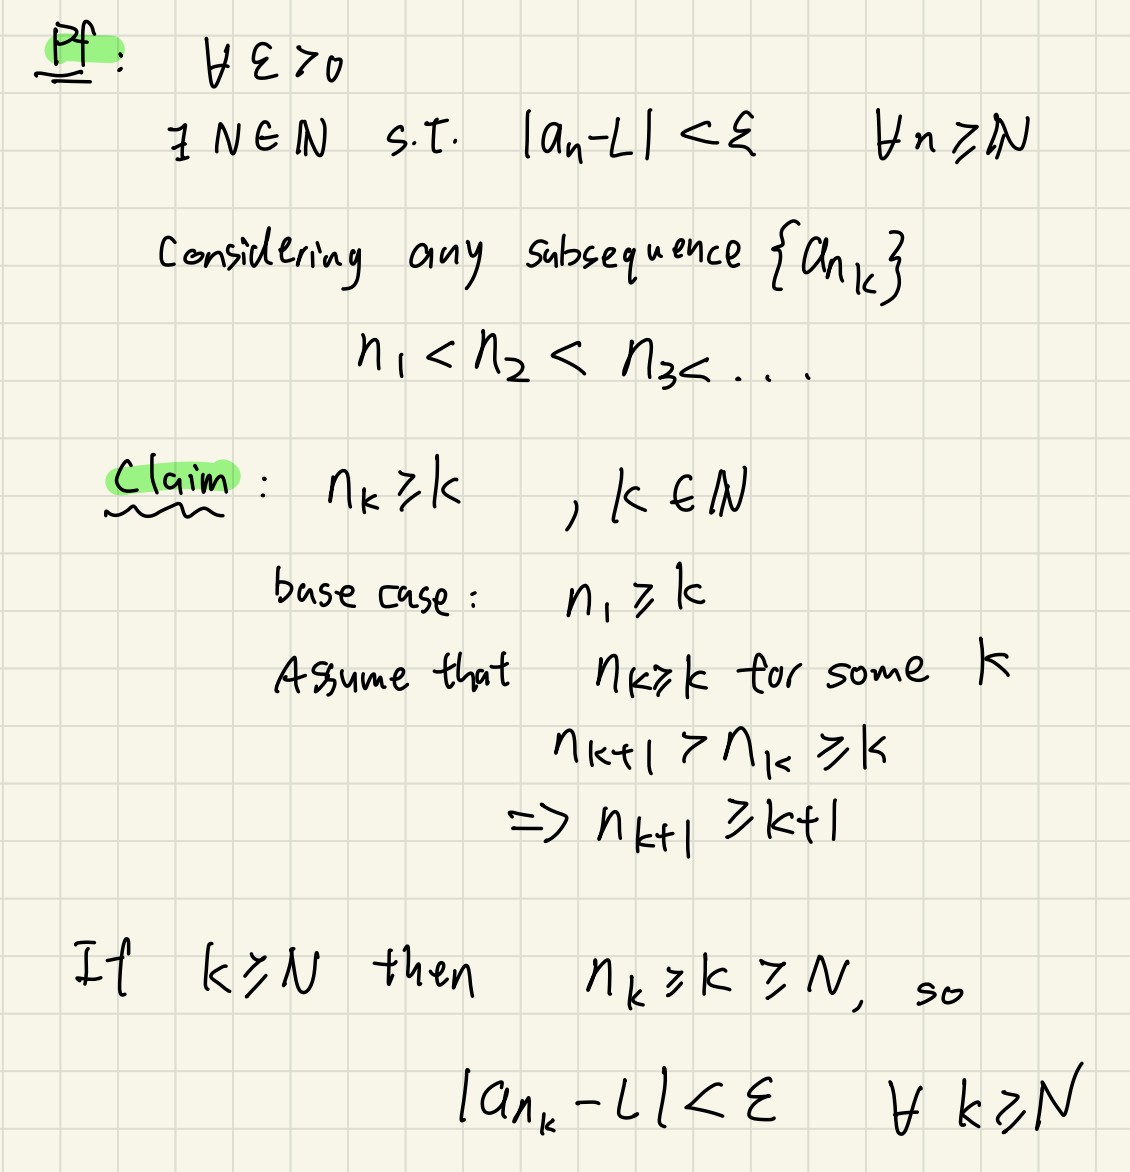 Pf: ∀ ε > 0
∃ N ∈ ℕ s.t. |aₙ - L| < ε ∀ n ≥ N
Considering any subsequence {a_{n_k}}
n₁ < n₂ < n₃ < ...
Claim: n_k ≥ k , k ∈ ℕ
base case: n₁ ≥ k
Assume that n_k ≥ k for some k
n_{k+1} > n_k ≥ k
=> n_{k+1} ≥ k+1
If k ≥ N then n_k ≥ k ≥ N, so
|a_{n_k} - L| < ε ∀ k ≥ N